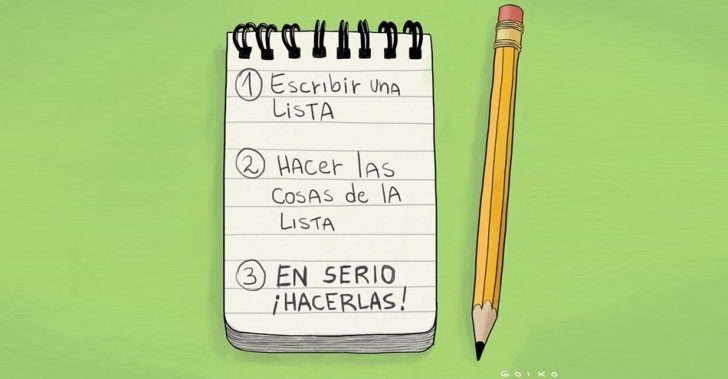 1 Escribir una
Lista
2 Hacer las
cosas de la
Lista
3 EN SERIO
¡HACERLAS!
GOIKO